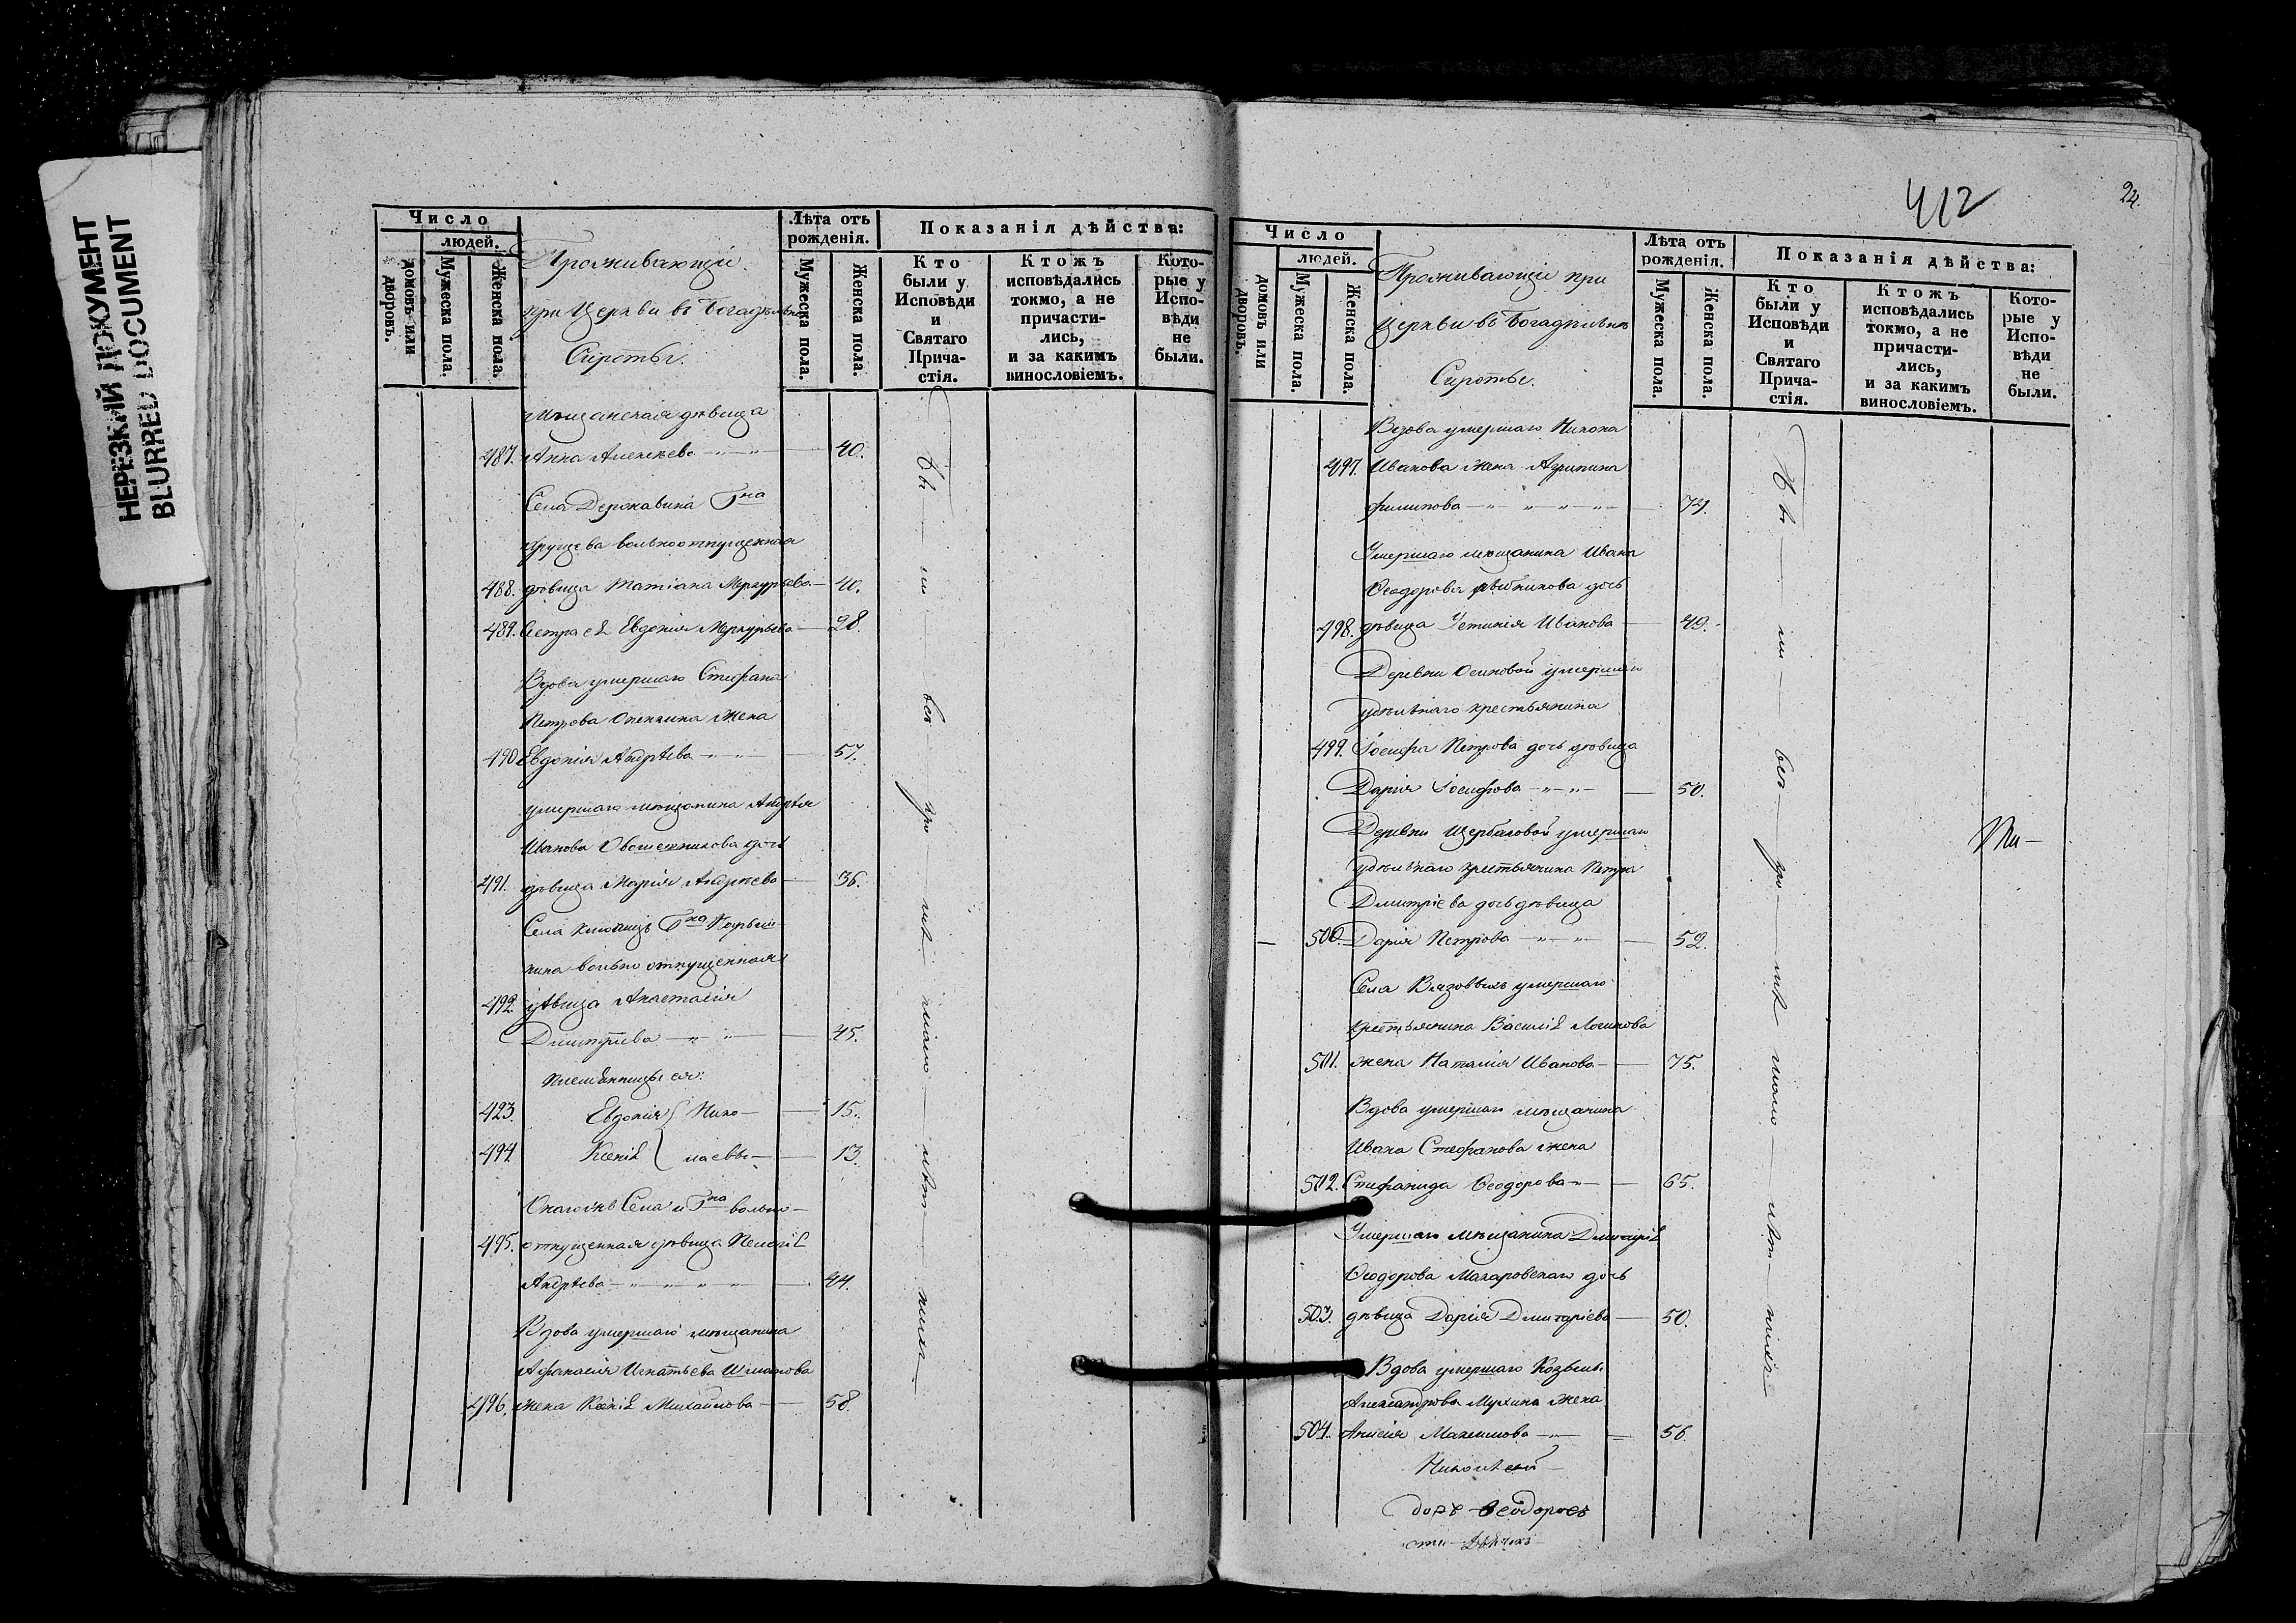 НЕРЕЗКИЙ ДОКУМЕНТ
BLURRED DOCUMENT
Число
людей.
домовъ или дворовъ.
Мужеска пола.
Женска пола.
Проживающіе
при Церкви въ Богадѣльнѣ
Сироты.
Лѣта отъ рожденія.
Мужеска пола.
Женска пола.
Показанія дѣйства:
Кто были у Исповѣди и Святаго Прича-стія.
Ктожъ исповѣдались токмо, а не причасти-лись, и за какимъ винословіемъ.
Кото-рые у Испо-вѣди не были.
Мѣщанская дѣвица
487. Анна Алексѣева 40.
Села Державина Гна
Хрущева вольноотпущенная
488. дѣвица Татіана Меркурьева 40.
489. Сестра еѣ Евдокія Меркурьева 28.
Вдова умершаго Стефана
Петрова Опенкина жена
490 Евдокія Андрѣева 57.
умершаго мѣщанина Андрѣя
Иванова Овошенникова дочь
491. дѣвица Марія Андрѣева 36.
Села Гна
вольно отпущенная
492. дѣвица Анастасія
Димитріева 45.
племянницы ея:
423. Евдокія Нико- 15.
494 Ксенія лаевы 13.
Онагожъ Села и Гна вольно-
495. отпущенная дѣвица Пелагія
Андрѣева 44.
Вдова умершаго мѣщанина
Афанасія Игнатьева Шмакова
496. жена Ксенія Михайлова 58.
412
24.
Число
людей.
домовъ или дворовъ.
Мужеска пола.
Женска пола.
Проживающіе при
Церкви въ Богадѣльнѣ
Сироты.
Лѣта отъ рожденія.
Мужеска пола.
Женска пола.
Показанія дѣйства:
Кто были у Исповѣди и Святаго Прича-стія.
Ктожъ исповѣдались токмо, а не причасти-лись, и за какимъ винословіемъ.
Кото-рые у Испо-вѣди не были.
Вдова умершаго Никона
497. Иванова жена Агрипина
Филипова
Умершаго мѣщанина Ивана
Ѳеодорова дочь
498. дѣвица Устинія Иванова 49.
Деревни Осиновой умершаго
удѣльнаго крестьянина
499. Іосифа Петрова дочь дѣвица
Дарія Іосифова 50.
Деревни Щербаковой умершаго
удѣльнаго крестьянина Петра
Димитріева дочь дѣвица
500. Дарія Петрова 52.
Села Вязовыхъ умершаго
крестьянина Василія Логинова
501. жена Наталія Иванова 75.
Вдова умершаго мѣщанина
Ивана Стефанова жена
502. Стефанида Ѳеодорова 65.
Умершаго мѣщанина Димитрія
Ѳеодорова Макаровскаго дочь
503. дѣвица Дарія Димитріева 50.
Вдова умершаго Козьмы
Александрова Мухина жена
504. Анисія Максимова 56.
Ѳеодоровъ